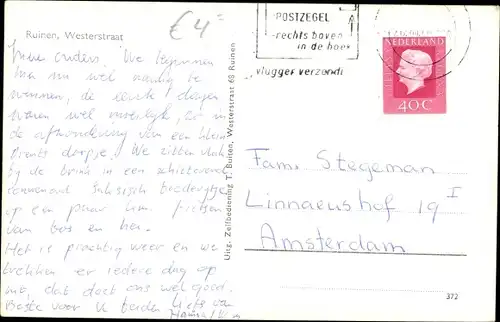 Ruinen, Westerstraat
€ 4=
POSTZEGEL
-rechts boven
in de hoek
vlugger verzendi
NEDERLAND
40C
We beginnen
nu wel aardig te
wennen, de eerste dagen
waren wel moeilijk, zo in
de afzondering van een klein
Drents dorpje. We zitten vlak
bij de brink in een schitterend
gerenoveerd Saksisch boerderijtje
op een paar km. fietsen
van bos en hei.
Het is prachtig weer en we
trekken er iedere dag op
uit, dat doet ons wel goed.
Beste voor U beiden, liefs van
Uitg. Zelfbediening T. Buiten, Westerstraat 68 Ruinen
Fam. Stegeman
Linnaeushof 19 I
Amsterdam
372